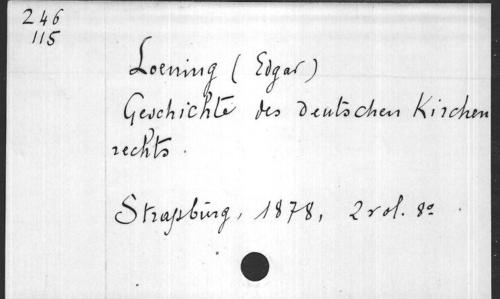 246
115
Loening (Edgar)
Geschichte des deutschen Kirchen
rechts.
Straßburg, 1878, 2 vol. 8º.